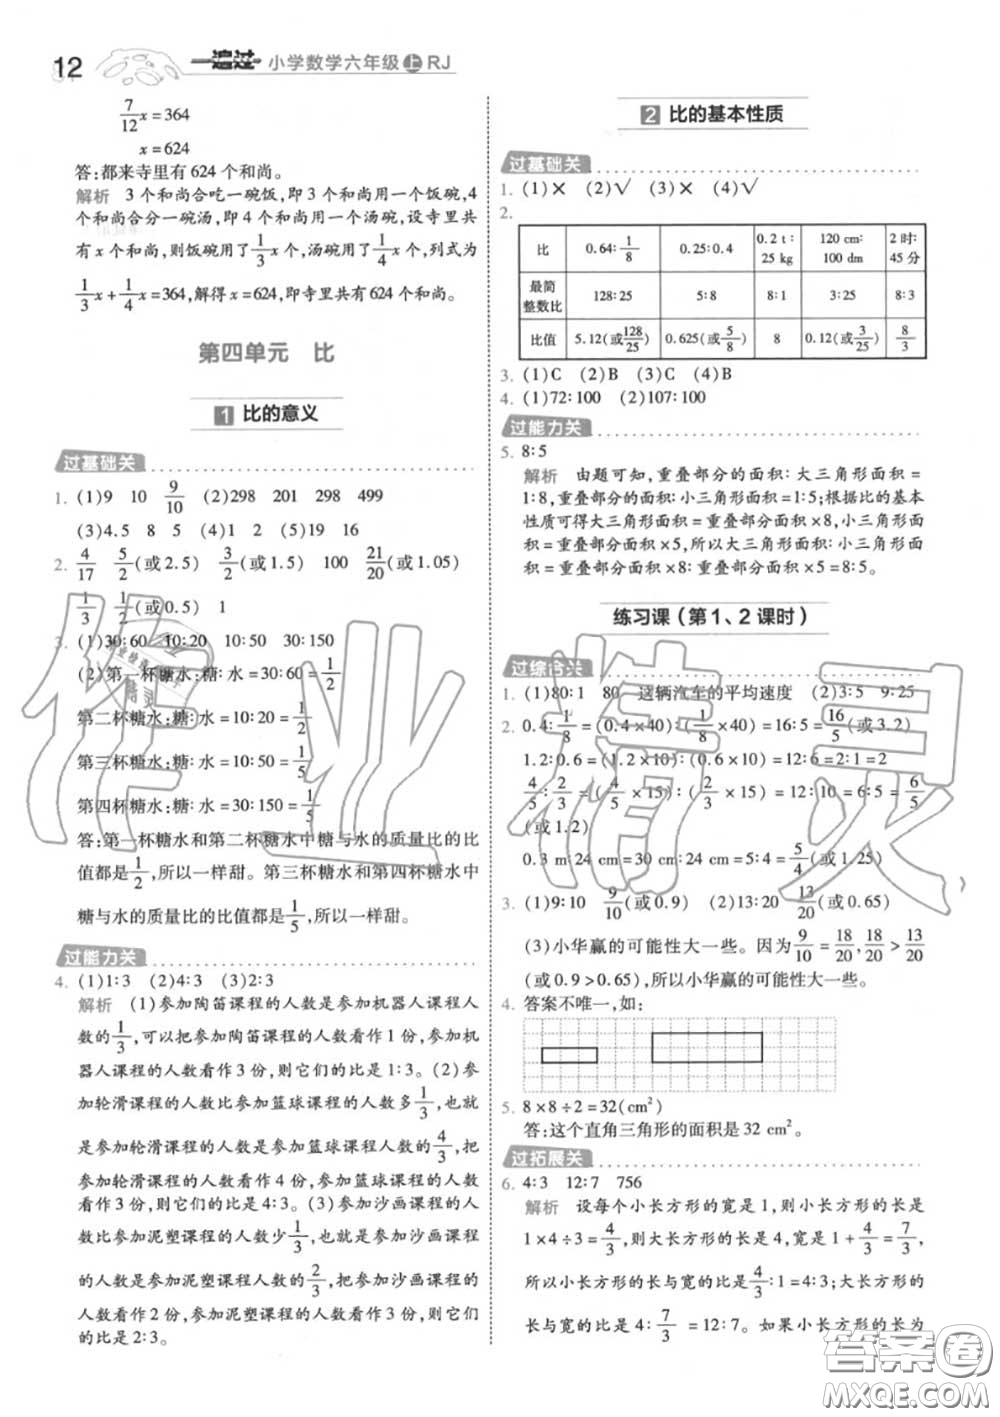 12 一遍过 小学数学六年级 上 RJ
7/12 x=364
x=624
答:都来寺里有 624 个和尚。
解析 3 个和尚合吃一碗饭,即 3 个和尚用一个饭碗,4
个和尚合分一碗汤,即 4 个和尚用一个汤碗,设寺里共
有 x 个和尚,则饭碗用了 1/3 x 个,汤碗用了 1/4 x 个,列式为
1/3 x + 1/4 x = 364,解得 x=624,即寺里共有 624 个和尚。
第四单元 比
1 比的意义
过基础关
1. (1)9 10 9/10 (2)298 201 298 499
(3)4.5 8 5 (4)1 2 (5)19 16
2. 4/17 5/2(或 2.5) 3/2(或 1.5) 100 21/20(或 1.05)
1/3 1/2(或 0.5) 1
3. (1)30∶60 10∶20 10∶50 30∶150
(2)第一杯糖水;糖∶水=30∶60=1/2
第二杯糖水;糖∶水=10∶20=1/2
第三杯糖水;糖∶水=10∶50=1/5
第四杯糖水;糖∶水=30∶150=1/5
答:第一杯糖水和第二杯糖水中糖与水的质量比的比
值是 1/2,所以一样甜。第三杯糖水和第四杯糖水中
糖与水的质量比的比值都是 1/5,所以一样甜。
过能力关
4. (1)1∶3 (2)4∶3 (3)2∶3
解析 (1)参加陶笛课程的人数是参加机器人课程人
数的 1/3,可以把参加陶笛课程的人数看作 1 份,参加机
器人课程的人数看作 3 份,则它们的比是 1∶3。(2)参
加轮滑课程的人数比参加篮球课程的人数多 1/3,也就
是参加轮滑课程的人数是参加篮球课程人数的 4/3,把
参加轮滑课程的人数看作 4 份,参加篮球课程的人数
看作 3 份,则它们的比是 4∶3。(3)参加沙画课程的人
数比参加泥塑课程的人数少 1/3,也就是参加沙画课程
的人数是参加泥塑课程人数的 2/3,把参加沙画课程的
人数看作 2 份,参加泥塑课程的人数看作 3 份,则它们
的比是 2∶3。
2 比的基本性质
过基础关
1. (1)✕ (2)√ (3)✕ (4)√
2.
比 0.64∶1/8 0.25∶0.4 0.2 t∶25 kg 120 cm∶100 dm 2 时∶45 分
最简整数比 128∶25 5∶8 8∶1 3∶25 8∶3
比值 5.12(或128/25) 0.625(或5/8) 8 0.12(或3/25) 8/3
3. (1)C (2)B (3)C (4)B
4. (1)72∶100 (2)107∶100
过能力关
5. 8∶5
解析 由题可知,重叠部分的面积∶大三角形面积=
1∶8,重叠部分的面积∶小三角形面积=1∶5;根据比的基本
性质可得大三角形面积=重叠部分面积×8,小三角形面
积=重叠部分面积×5,所以大三角形面积∶小三角形面
积=重叠部分面积×8∶重叠部分面积×5=8∶5。
练习课(第 1、2 课时)
过综合关
1. (1)80∶1 80 这辆汽车的平均速度 (2)3∶5 9∶25
2. 0.4∶1/8=(0.4×40)∶(1/8×40)=16∶5=16/5(或 3.2)
1.2∶0.6=(1.2×10)∶(0.6×10)=12∶6=2∶1=2
4/5∶2/3=(4/5×15)∶(2/3×15)=12∶10=6∶5=6/5
(或 1.2)
0.3 m∶24 cm=30 cm∶24 cm=5∶4=5/4(或 1.25)
3. (1)9∶10 9/10(或 0.9) (2)13∶20 13/20(或 0.65)
(3)小华赢的可能性大一些。因为 9/10=18/20,18/20>13/20
(或 0.9>0.65),所以小华赢的可能性大一些。
4. 答案不唯一,如:
5. 8×8÷2=32(cm²)
答:这个直角三角形的面积是 32 cm²。
过拓展关
6. 4∶3 12∶7 756
解析 设每个小长方形的宽是 1,则小长方形的长是
1×4÷3=4/3,则大长方形的长是 4,宽是 1+4/3=7/3,
所以小长方形的长与宽的比是 4/3∶1=4∶3;大长方形的
长与宽的比是 4∶7/3=12∶7。如果小长方形的长为
作业精灵
答案圈
MXQE.COM